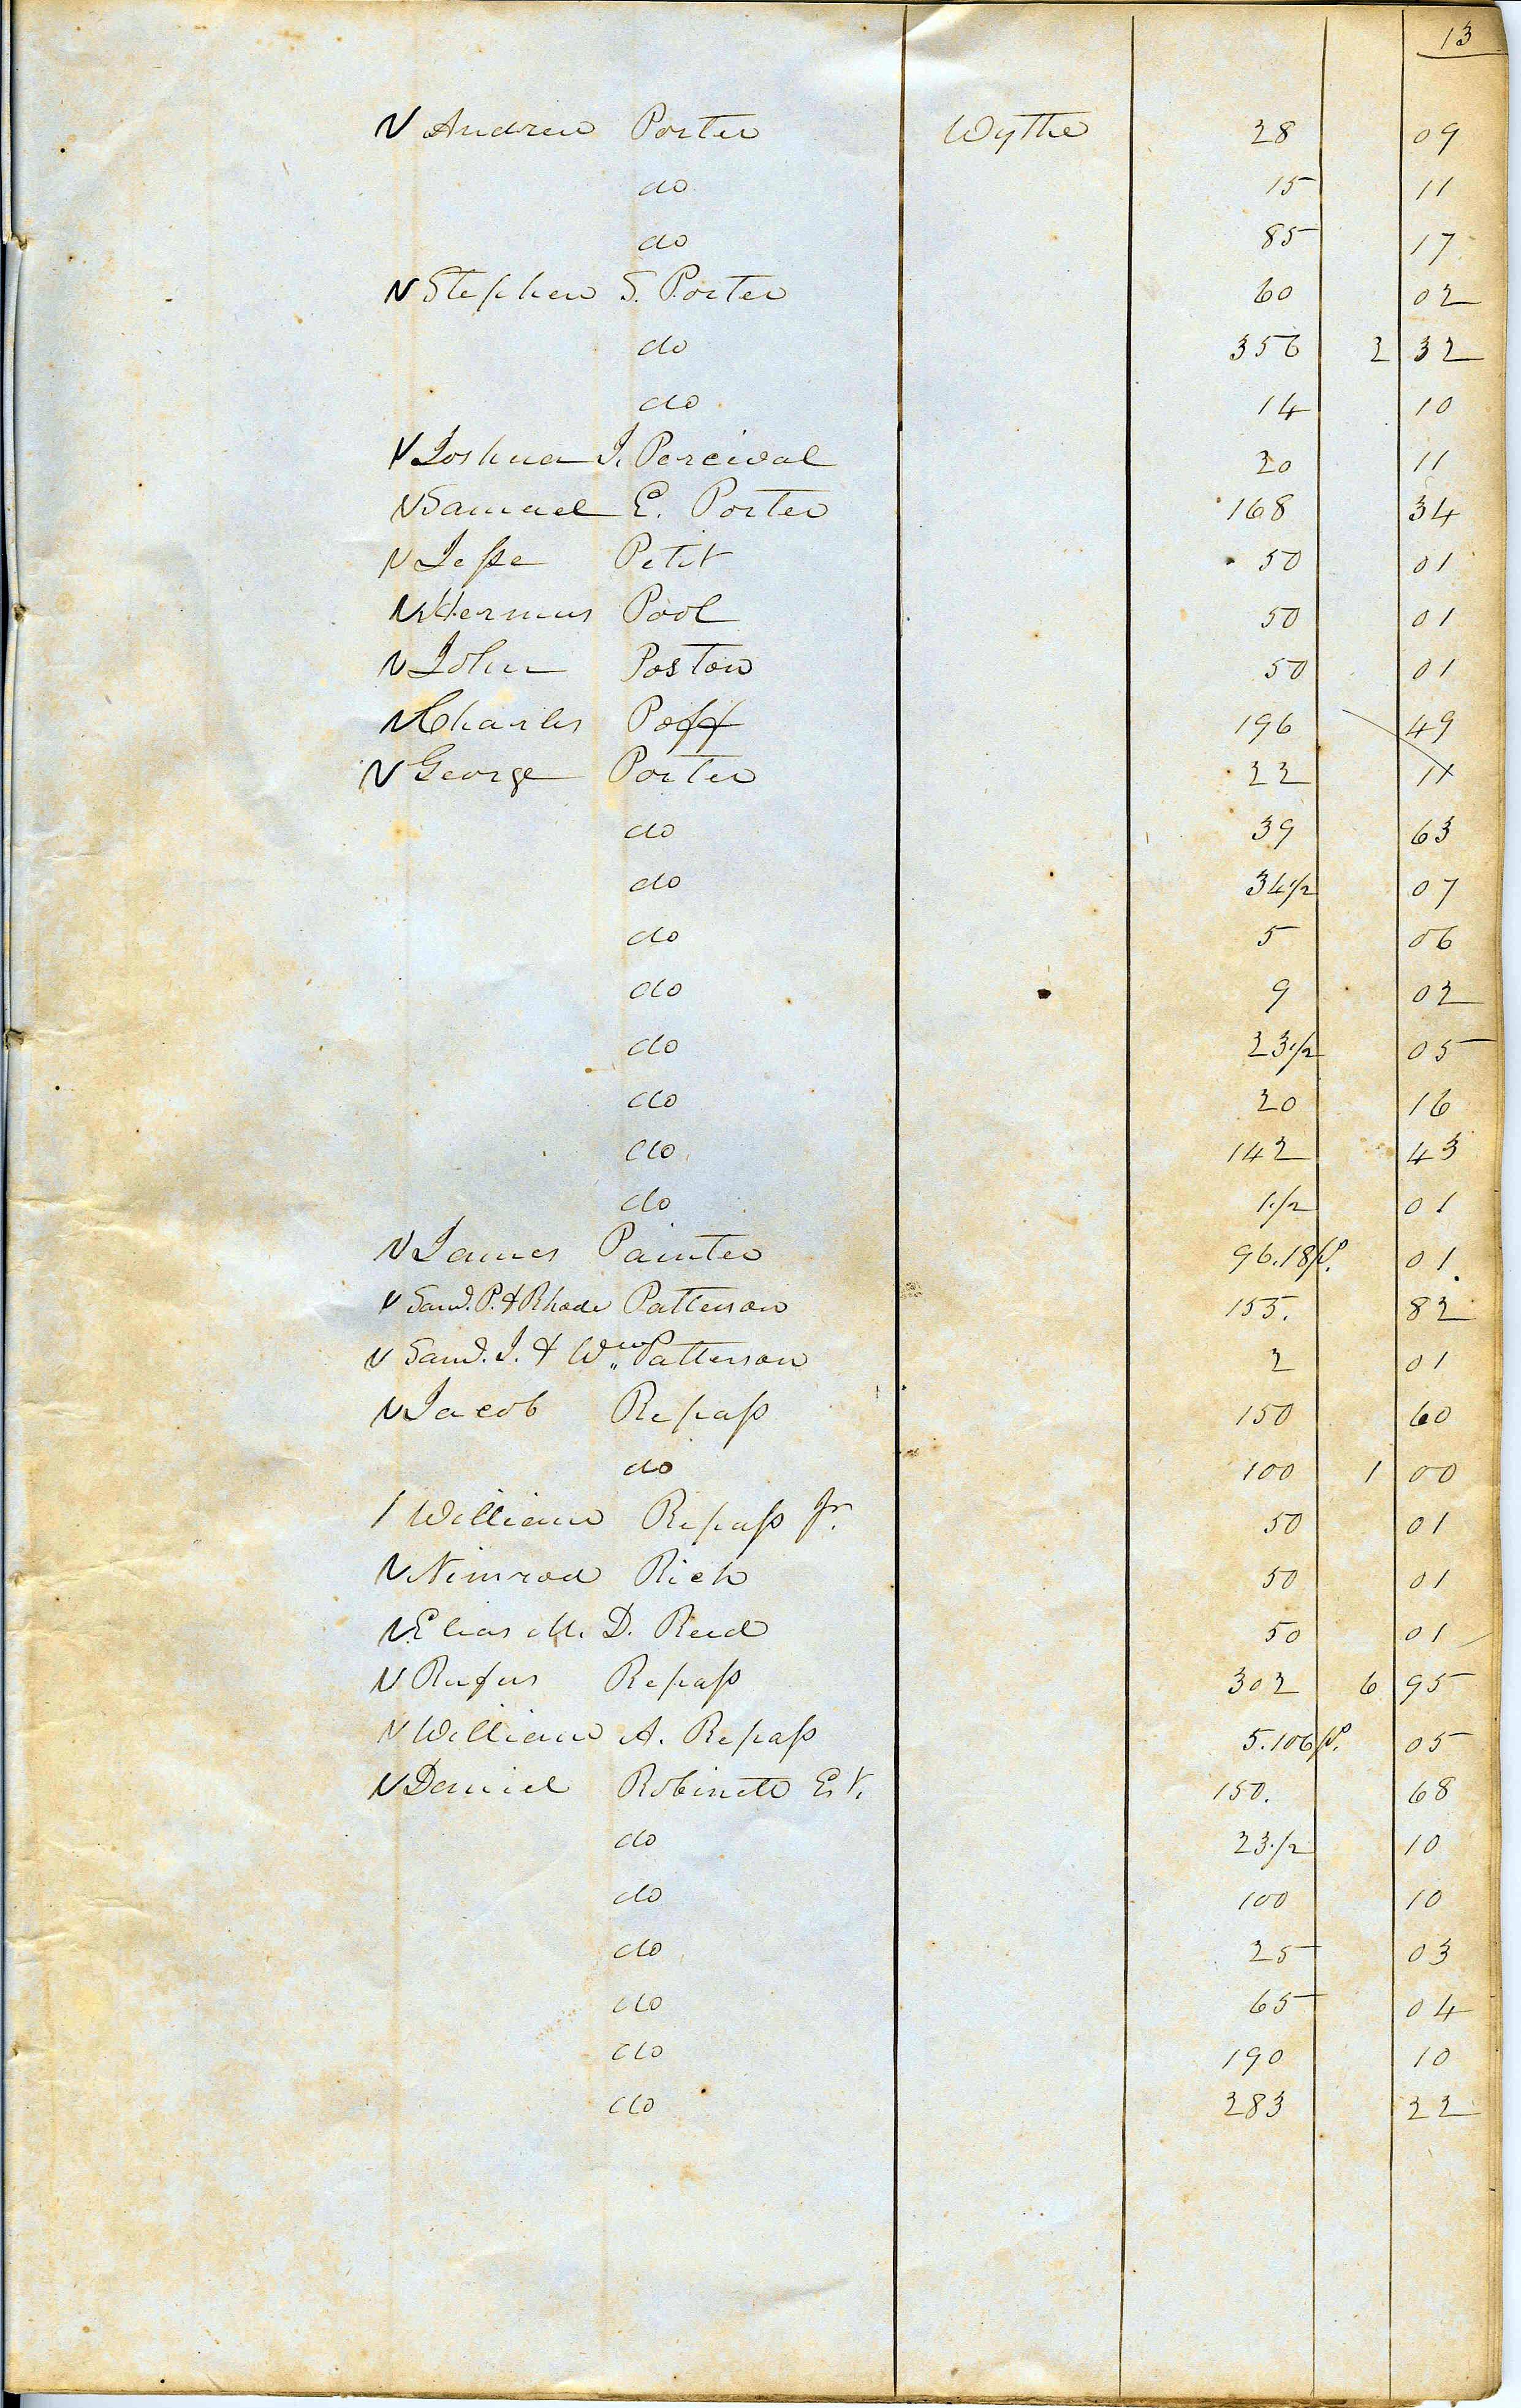 13
Andrew Porter Wythe 28 09
do 15 11
do 85 17
Stephen S. Porter 60 02
do 356 2 32
do 14 10
Joshua J. Percival 20 11
Samuel E. Porter 168 34
Jesse Petit 50 01
Hermus Pool 50 01
John Poston 50 01
Charles Poff 196 49
George Porter 22 11
do 39 63
do 34 1/2 07
do 5 06
do 9 02
do 23 1/2 05
do 20 16
do 142 43
do 1 1/2 01
James Painter 96.18 p. 01
Saml. P. & Rhoda Patterson 155. 82
Saml. J. & Wm Patterson 2 01
Jacob Repass 150 60
do 100 1 00
William Repass Jr. 50 01
Nimrod Rich 50 01
Elias M. D. Reed 50 01
Rufus Repass 302 6 95
William A. Repass 5.106 p. 05
Daniel Robinett Est. 150. 68
do 23 1/2 10
do 100 10
do 25 03
do 65 04
do 190 10
do 283 22